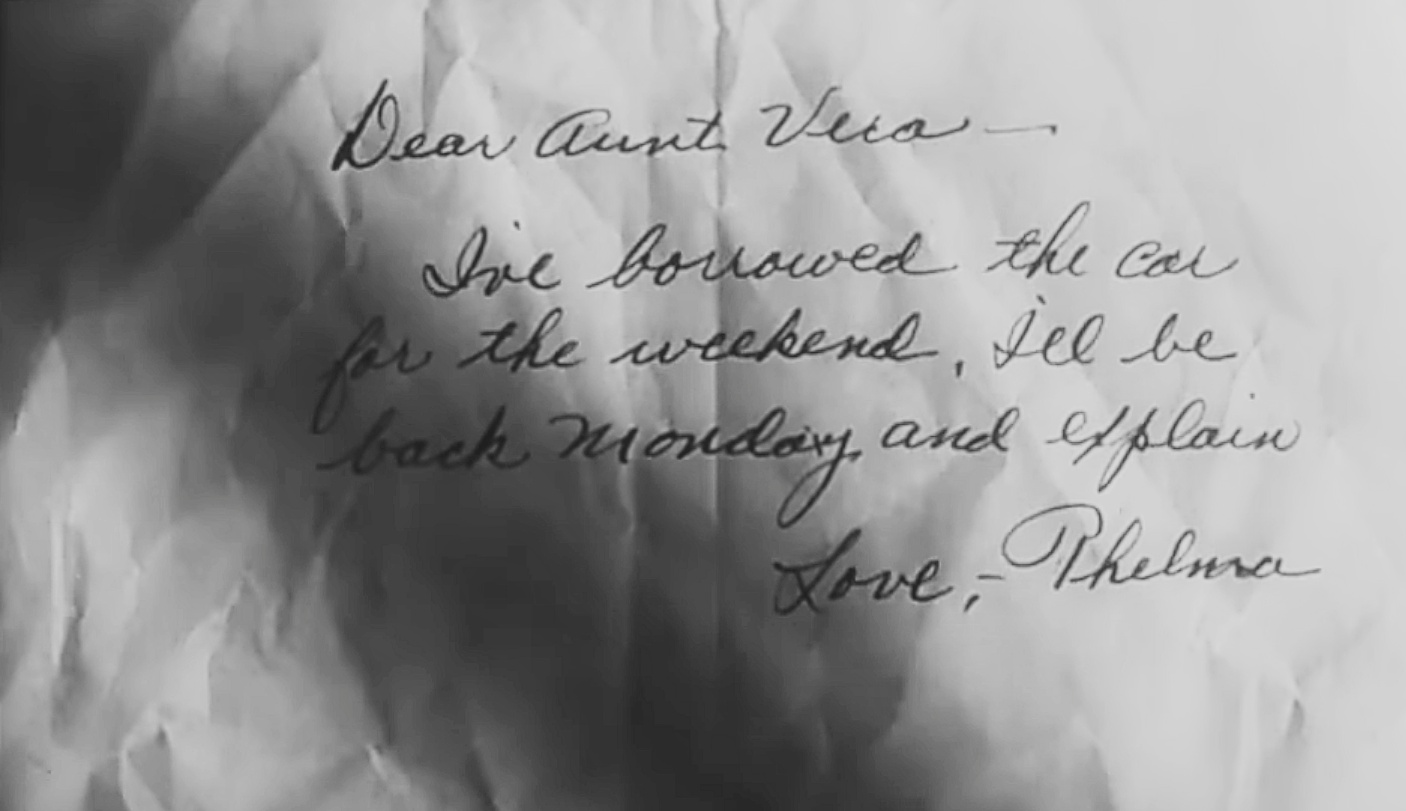 Dear Aunt Vera —
I've borrowed the car
for the weekend, I'll be
back Monday and explain
Love, - Thelma